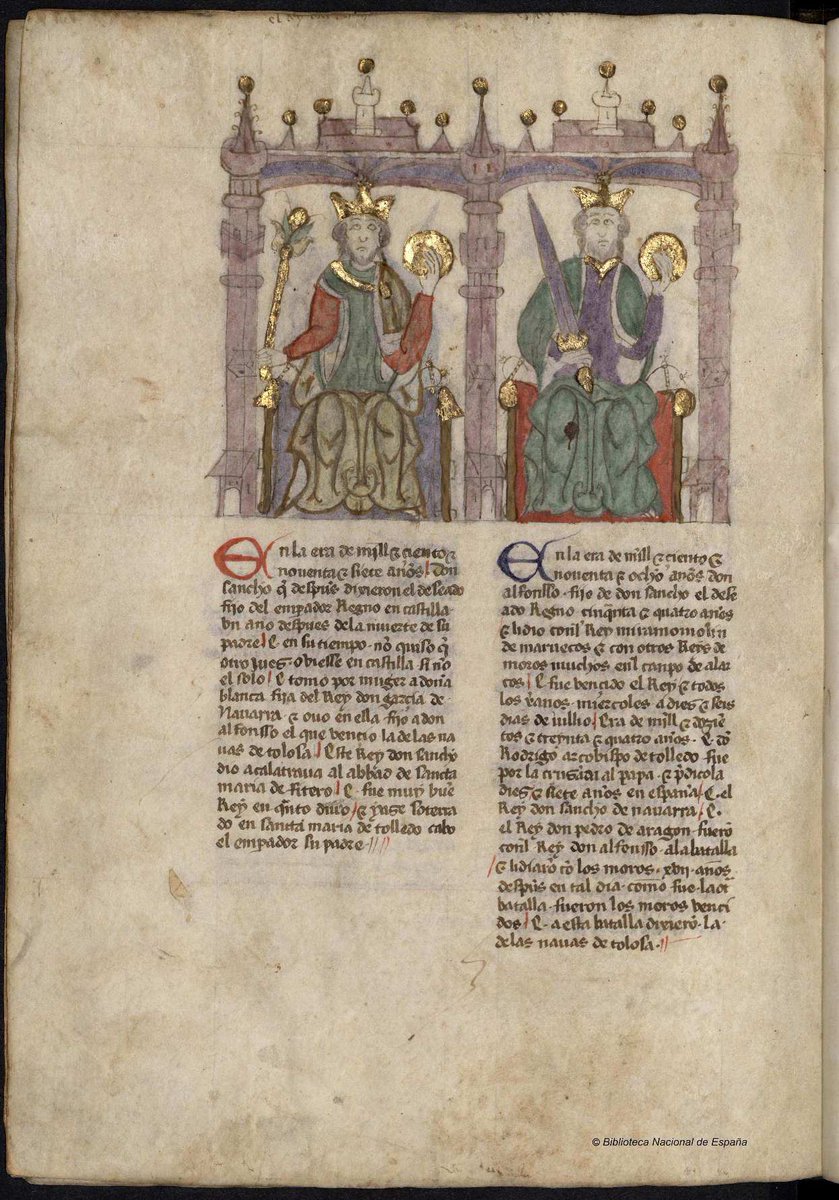 En la era de mill & ciento &
noventa & siete años. don
sancho q̃ despues dixieron el deseado
fijo del empador Regno en castilla
vn año despues de la muerte de su
padre. E en su tiempo no quiso q̃
otro juez ouiesse en castilla si no
el solo. E tomo por muger a doña
blanca fija del Rey don garcia de
Nauarra. & ouo en ella fijo a don
alfonsso el que vencio la de las na
uas de tolosa. Este Rey don sancho
dio a calatraua al abbad de sancta
maria de fitero. E fue muy bue
Rey en & yaze soterra
do en sancta maria de tolledo cabo
el empador su padre
En la era de mill & ciento &
nouenta & ocho años don
alfonsso fijo de don sancho el dese
ado Regno cinq̃nta & quatro años
& lidio conl Rey miramomolin
de marruecos & con otros Reys de
moros muchos enl canpo de alar
cos. E fue vencido el Rey & todos
los miercoles a dies & seis
dias de iullio. Era de mill & dozien
tos & treynta & quatro años. E dõ
Rodrigo arcobispo de tolledo fue
por la cruzada al papa & p̃dicola
dies & siete años en españa. E. el
Rey don sancho de nauarra. E.
el Rey don pedro de aragon fuerõ
conl Rey don alfonsso a la batalla
& lidiarõ cõ los moros. xvii. años
despues en tal dia como fue la ot̃
batalla. fueron los moros venci
dos. E. a esta batalla dixierõ la
de las nauas de tolosa.
© Biblioteca Nacional de España